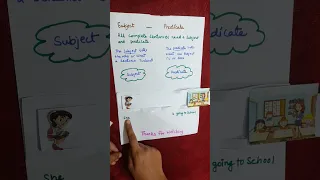 Subject — Predicate
All complete sentences need a subject
and predicate
The subject tells
the who or what
a sentence
The predicate tells
what the subject
is or does
Subject
Predicate
is going to School
She
Thanks for watching
Subject
She
going to School